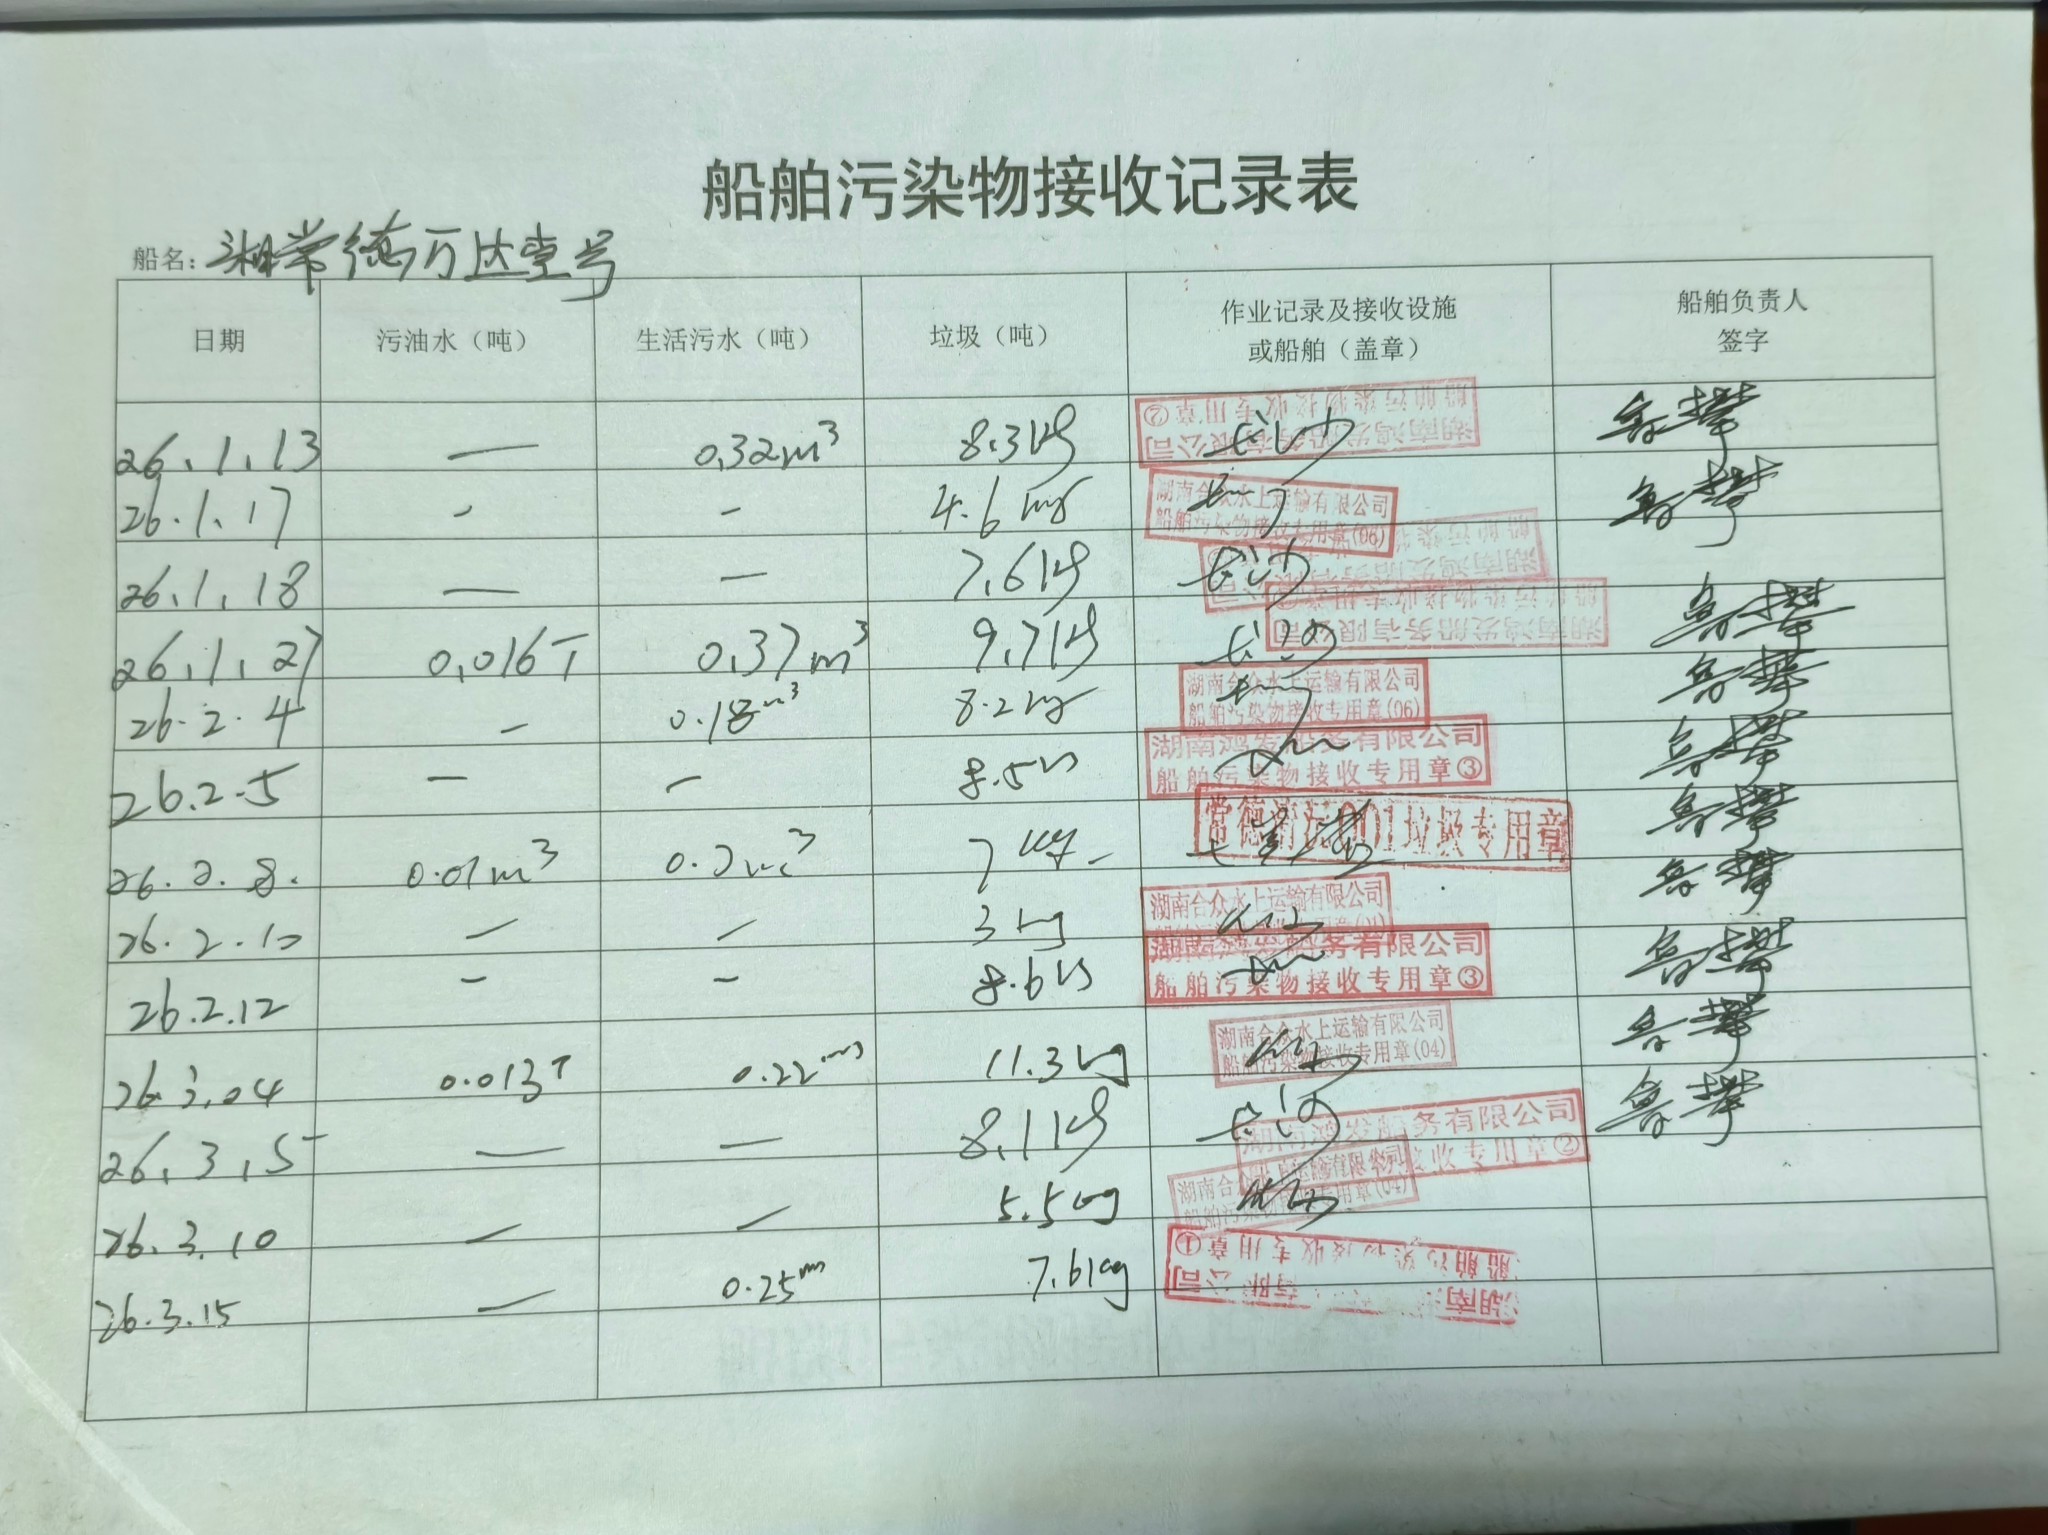 船舶污染物接收记录表
船名：湘常德万达壹号
日期 污油水（吨） 生活污水（吨） 垃圾（吨） 作业记录及接收设施或船舶（盖章） 船舶负责人签字
26.1.13 — 0.32m³ 8.3kg 长沙 湖南鸿发船务有限公司 船舶污染物接收专用章②
26.1.17 - - 4.6kg 湖南合众水上运输有限公司 船舶污染物接收专用章(06)
26.1.18 — — 7.6kg 长沙 湖南鸿发船务有限公司 船舶污染物接收专用章
26.1.27 0.016T 0.37m³ 9.7kg 长沙 湖南鸿发船务有限公司 船舶污染物接收专用章
26.2.4 - 0.18m³ 8.2kg 湖南合众水上运输有限公司 船舶污染物接收专用章(06)
26.2.5 - - 8.5kg 湖南鸿发船务有限公司 船舶污染物接收专用章③
26.2.8. 0.01m³ 0.2m³ 7kg 常德清污001垃圾专用章
26.2.10 - - 3kg 湖南合众水上运输有限公司
26.2.12 - - 8.6kg 湖南鸿发船务有限公司 船舶污染物接收专用章③
26.3.04 0.013T 0.22m³ 11.3kg 湖南合众水上运输有限公司 船舶污染物接收专用章(04)
26.3.5 — — 8.1kg 长沙 湖南鸿发船务有限公司 接收专用章②
26.3.10 - - 5.5kg 湖南合众水上运输有限公司 船舶污染物接收专用章(04)
26.3.15 — 0.25m 7.6kg 湖南 有限公司 船舶污染物接收专用章①